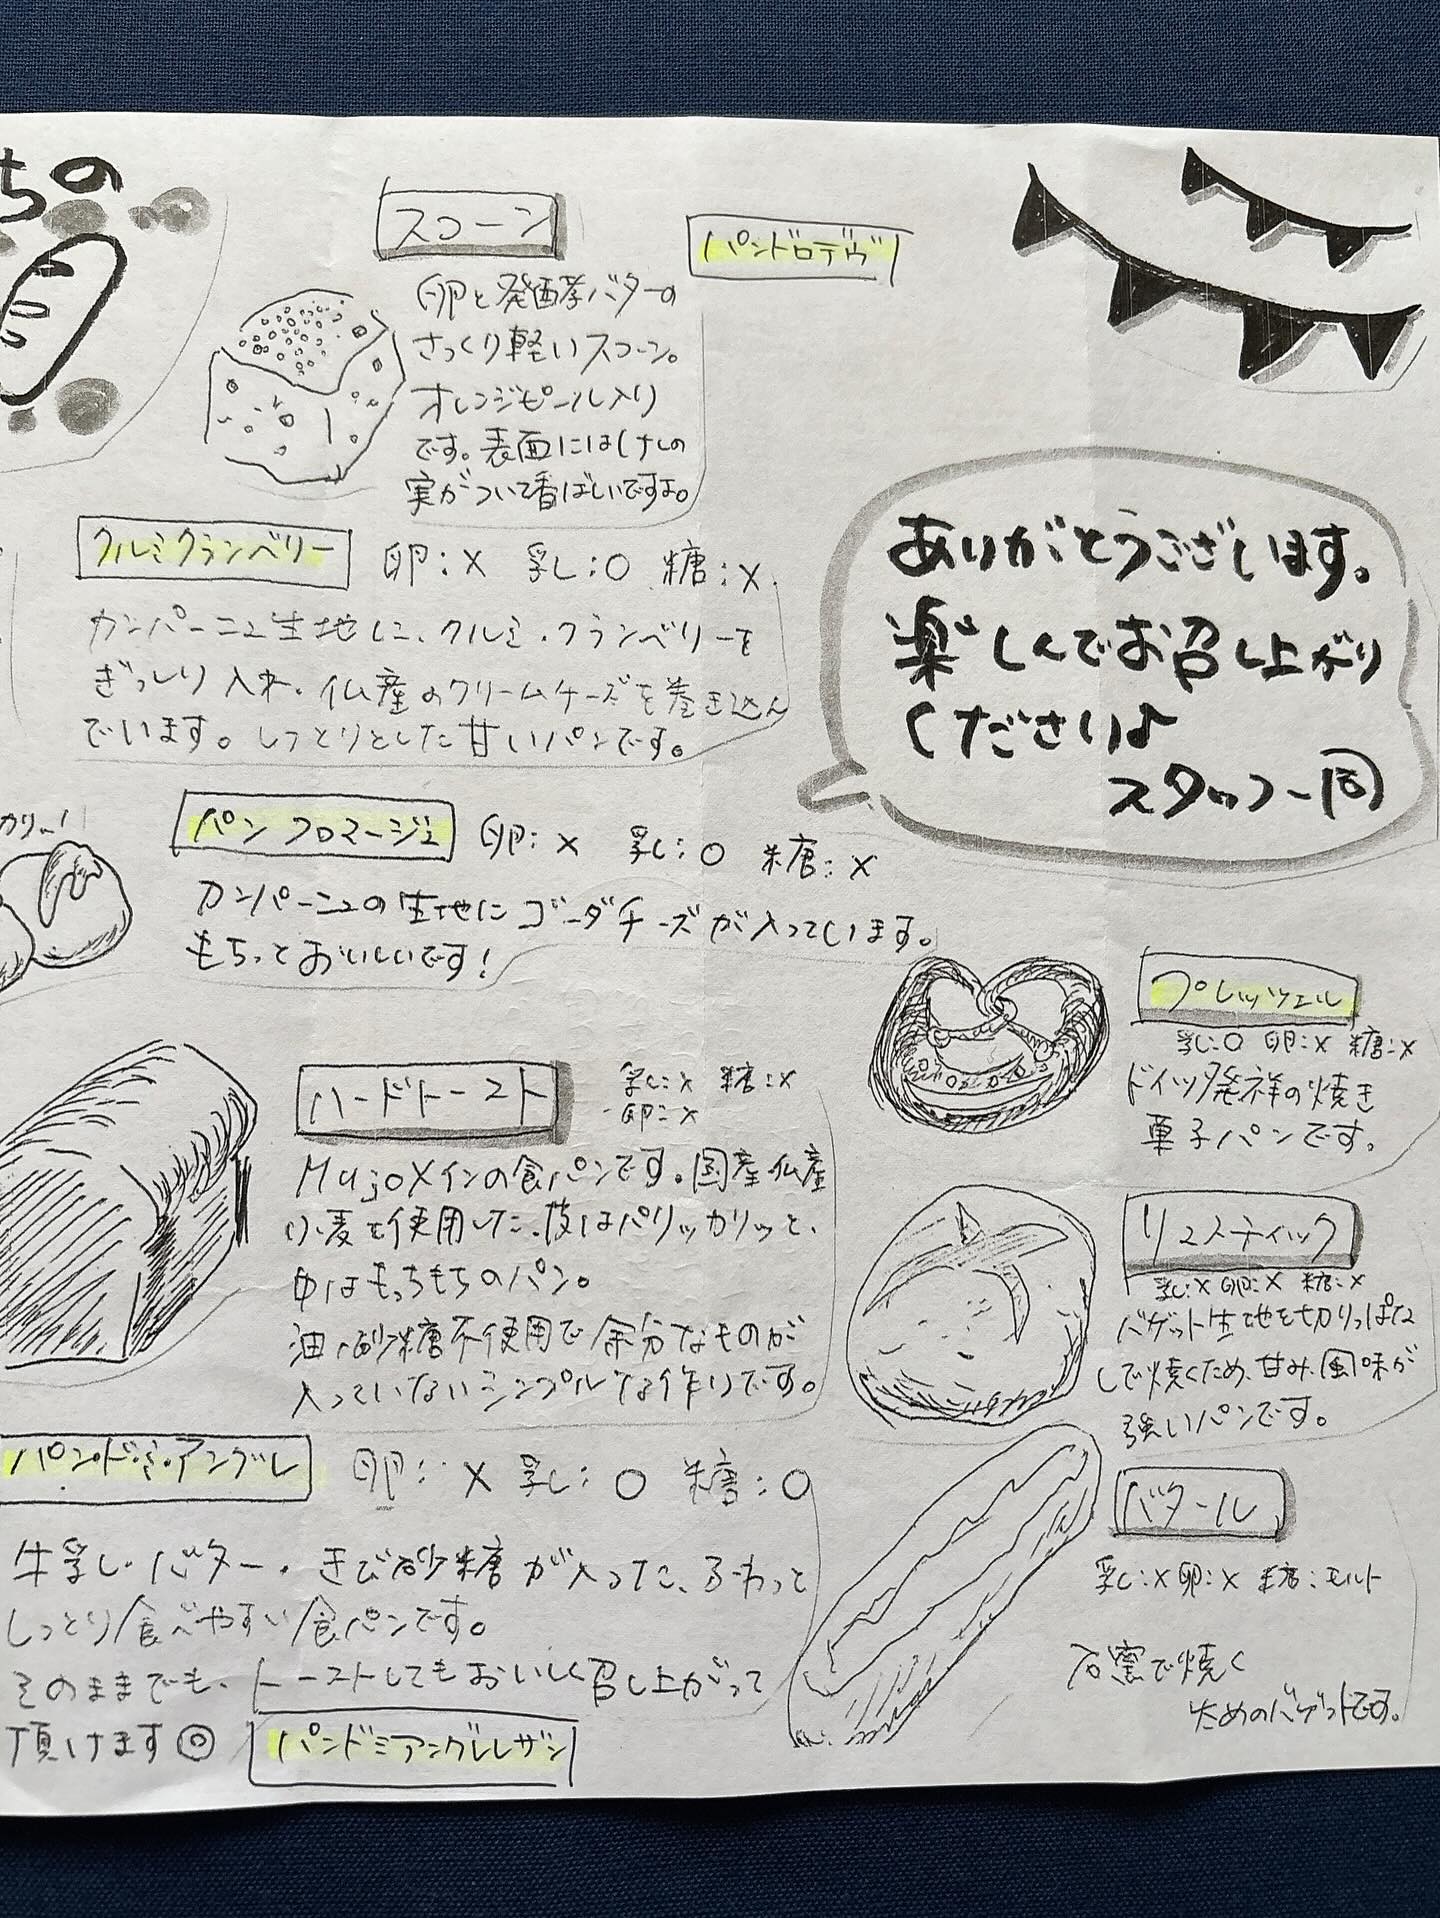 ちの
スコーン
卵と発酵バターの
さっくり軽いスコーン。
オレンジピール入り
です。表面にはけしの
実がついて香ばしいですよ。
パンドロデヴ
ありがとうございます。
楽しんでお召し上がり
ください♪
スタッフ一同
クルミクランベリー 卵:× 乳し:○ 糖:×
カンパーニュ生地に、クルミ・クランベリーを
ぎっしり入れ、仏産のクリームチーズを巻き込ん
でいます。しっとりとした甘いパンです。
カリー!
パン フロマージュ 卵:× 乳し:○ 糖:×
カンパーニュの生地にゴーダチーズが入っています。
もちっとおいしいです!
プレッツェル
乳:○ 卵:× 糖:×
ドイツ発祥の焼き
菓子パンです。
ハードトースト 乳:× 糖:×
卵:×
Mujoメインの食パンです。国産仏産
小麦を使用した、皮はパリッカリッと、
中はもっちもちのパン。
油・砂糖不使用で余分なものが
入っていないシンプルな作りです。
リュスティック
乳:× 卵:× 糖:×
バゲット生地を切りっぱな
しで焼くため、甘み、風味が
強いパンです。
パン・ド・ミ・アングレ 卵:× 乳し:○ 糖:○
牛乳し・バター・きび砂糖が入った、ふわっと
しっとり食べやすい食パンです。
そのままでも、トーストしてもおいしく召し上がって
頂けます◎
パンドミアングレレザン
バタール
乳:× 卵:× 糖:モルト
石窯で焼く
ためのバゲットです。